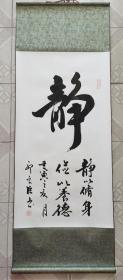 静
静以脩身
俭以养德
壬寅之亥月